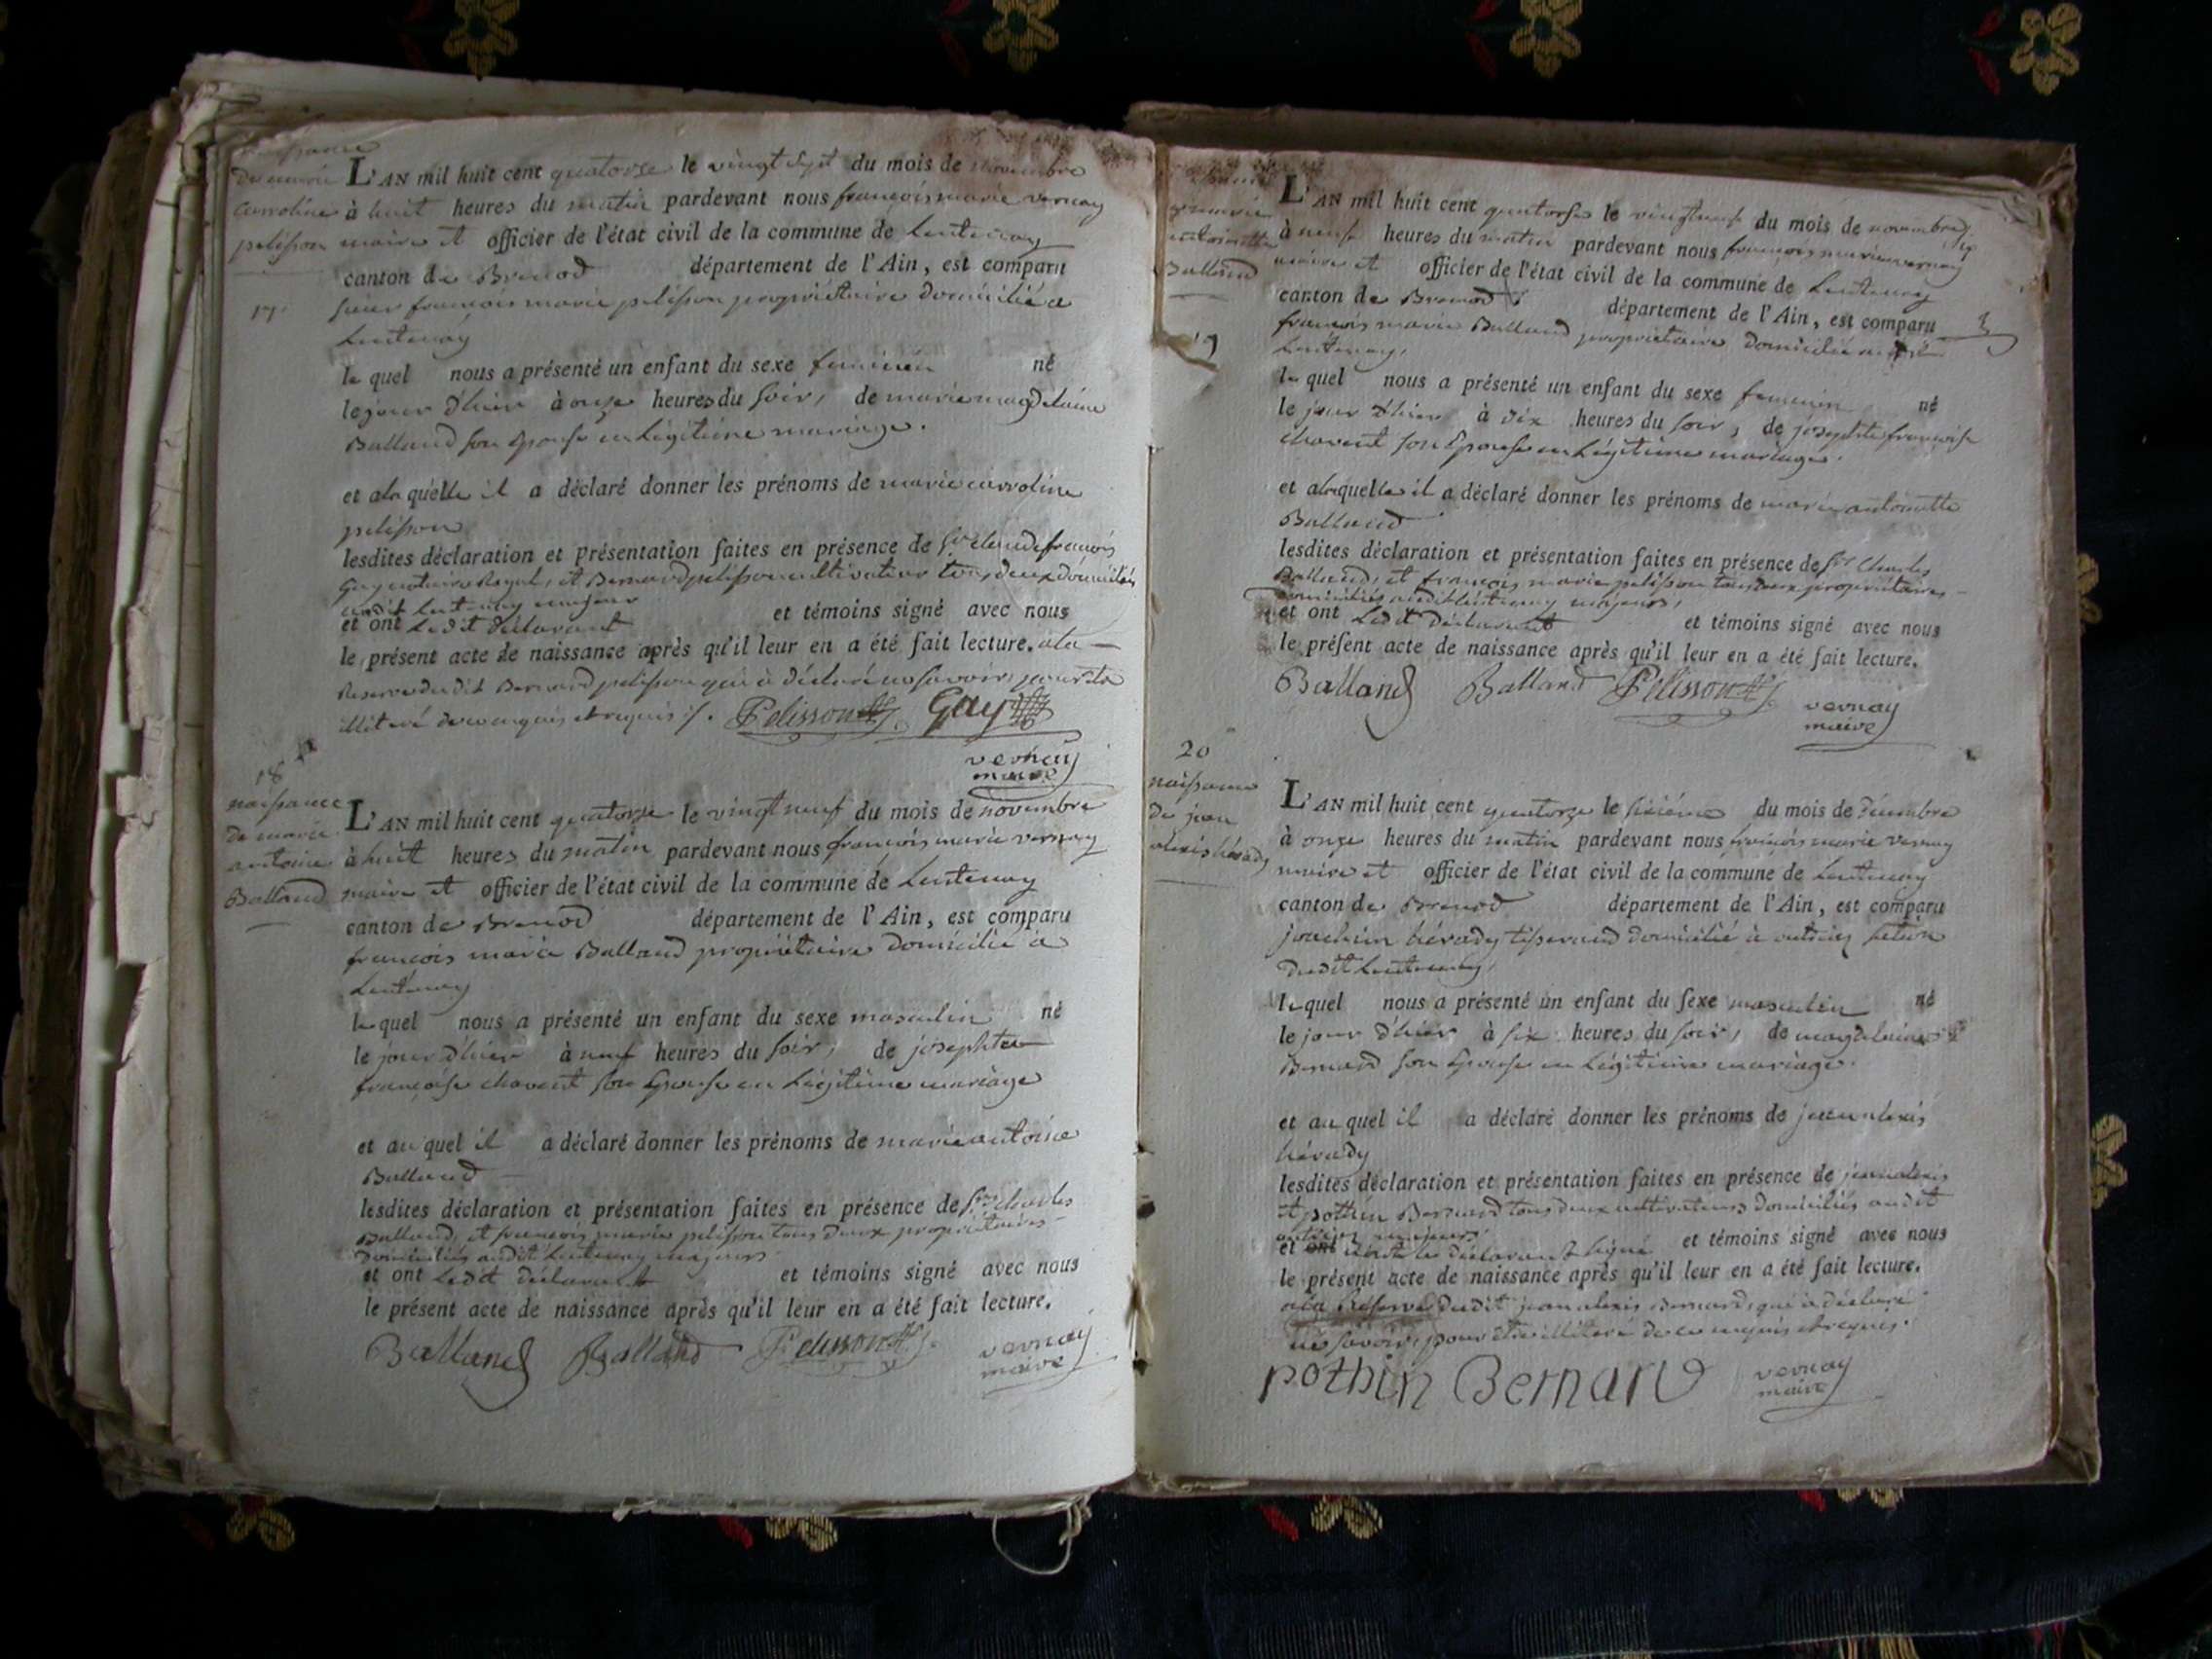 naissance
de marie
carroline
pelisson
17.
L'AN mil huit cent quatorze le vingt sept du mois de novembre
à huit heures du matin pardevant nous françois marie vernay
maire et officier de l'état civil de la commune de Lentenay
canton de Brenod département de l'Ain, est comparu
sieur françois marie pelisson propriétaire domicilié a
Lentenay
le quel nous a présenté un enfant du sexe feminin né
le jour d'hier à onze heures du soir, de marie magdelaine
Balland son épouse en légitime mariage.
et a la quelle il a déclaré donner les prénoms de marie carroline
pelisson
lesdites déclaration et présentation faites en présence de Sr. claude françois
Guy notaire Royal, et Bernard pelisson cultivateur tous deux domiciliés
audit Lentenay majeurs
et ont ledit déclarant et témoins signé avec nous
le présent acte de naissance après qu'il leur en a été fait lecture. a la
Reserve dudit Bernard pelisson qui a déclaré ne savoir, pour etre
illiteré de ce enquis et requis ./.
Pelisson Guy
vernay
maire
18
naissance
de marie
antoine
Balland
L'AN mil huit cent quatorze le vingt neuf du mois de novembre
à huit heures du matin pardevant nous françois marie vernay
maire et officier de l'état civil de la commune de Lentenay
canton de Brenod département de l'Ain, est comparu
françois marie Balland propriétaire domicilié a
Lentenay
le quel nous a présenté un enfant du sexe masculin né
le jour d'hier à neuf heures du soir, de josephte
françoise chavent son épouse en légitime mariage
et au quel il a déclaré donner les prénoms de marie antoine
Balland
lesdites déclaration et présentation faites en présence de Srs. charles
Balland, et françois marie pelisson tous deux propriétaires
domiciliés audit Lentenay majeurs
et ont ledit déclarant et témoins signé avec nous
le présent acte de naissance après qu'il leur en a été fait lecture.
Balland Balland Pelisson vernay
maire
marie
antoinette
Balland
19
L'AN mil huit cent quatorze le vingt neuf du mois de novembre
à neuf heures du matin pardevant nous françois marie vernay
maire et officier de l'état civil de la commune de Lentenay
canton de Brenod département de l'Ain, est comparu
françois marie Balland propriétaire domicilié
Lentenay,
le quel nous a présenté un enfant du sexe feminin né
le jour d'hier à dix heures du soir, de josephte françoise
chavent son épouse en légitime mariage.
et a la quelle il a déclaré donner les prénoms de marie antoinette
Balland
lesdites déclaration et présentation faites en présence de Srs Charles
Balland, et françois marie pelisson tous deux propriétaires
domiciliés audit Lentenay majeurs,
et ont ledit déclarant et témoins signé avec nous
le présent acte de naissance après qu'il leur en a été fait lecture.
Balland Balland Pelisson vernay
maire
20
naissance
de jean
alexis hérady
L'AN mil huit cent quatorze le sixième du mois de décembre
à onze heures du matin pardevant nous françois marie vernay
maire et officier de l'état civil de la commune de Lentenay
canton de Brenod département de l'Ain, est comparu
joachim hérady tisserand domicilié à outriaz
dudit Lentenay,
le quel nous a présenté un enfant du sexe masculin né
le jour d'hier à six heures du soir, de magdelaine
Bernard son épouse en légitime mariage.
et au quel il a déclaré donner les prénoms de jean alexis
hérady
lesdites déclaration et présentation faites en présence de jean alexis
et pothin Bernard tous deux cultivateurs domiciliés audit
outriaz majeurs
et ont le déclarant signé et témoins signé avec nous
le présent acte de naissance après qu'il leur en a été fait lecture.
a la Reserve dudit jean alexis Bernard, qui a déclaré
ne savoir, pour etre illiteré de ce enquis et requis.
pothin Bernard vernay
maire